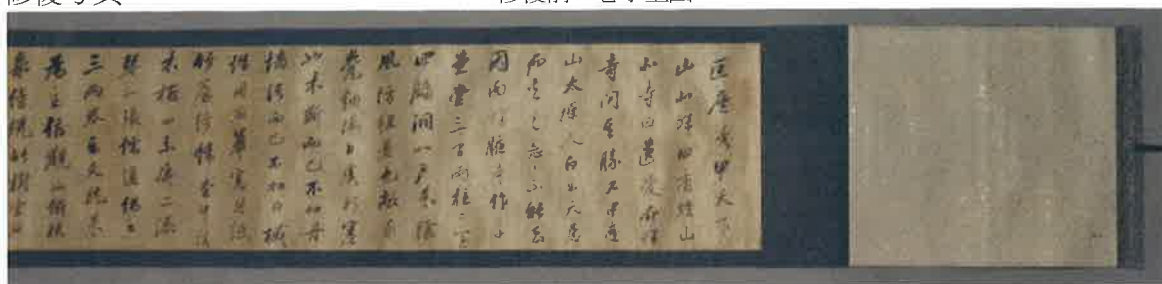 匡廬奇秀甲天下
山山北峰曰香爐山
北寺曰遺愛寺介峰
寺間其勝又甲廬
山太原人白樂天見
而愛之戀戀不能去
因面峰腋寺作草
堂三間兩柱二室
四牖洞北戶來陰
風防徂暑也敞南
甍納陽日虞祁寒
木斲而已不加丹
墻圬而已不加白磩
階用石冪窓用紙
竹簾紵幃堂中設
木榻四素屏二漆
琴一張儒道佛書
三兩卷樂天既來
為主仰觀山俯聽
泉傍睨竹樹雲